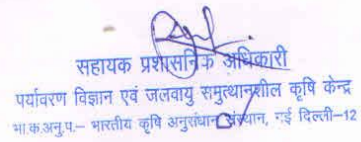 सहायक प्रशासनिक अधिकारी
पर्यावरण विज्ञान एवं जलवायु समुत्थानशील कृषि केन्द्र
भा.क.अनु.प.– भारतीय कृषि अनुसंधान संस्थान, नई दिल्ली–12